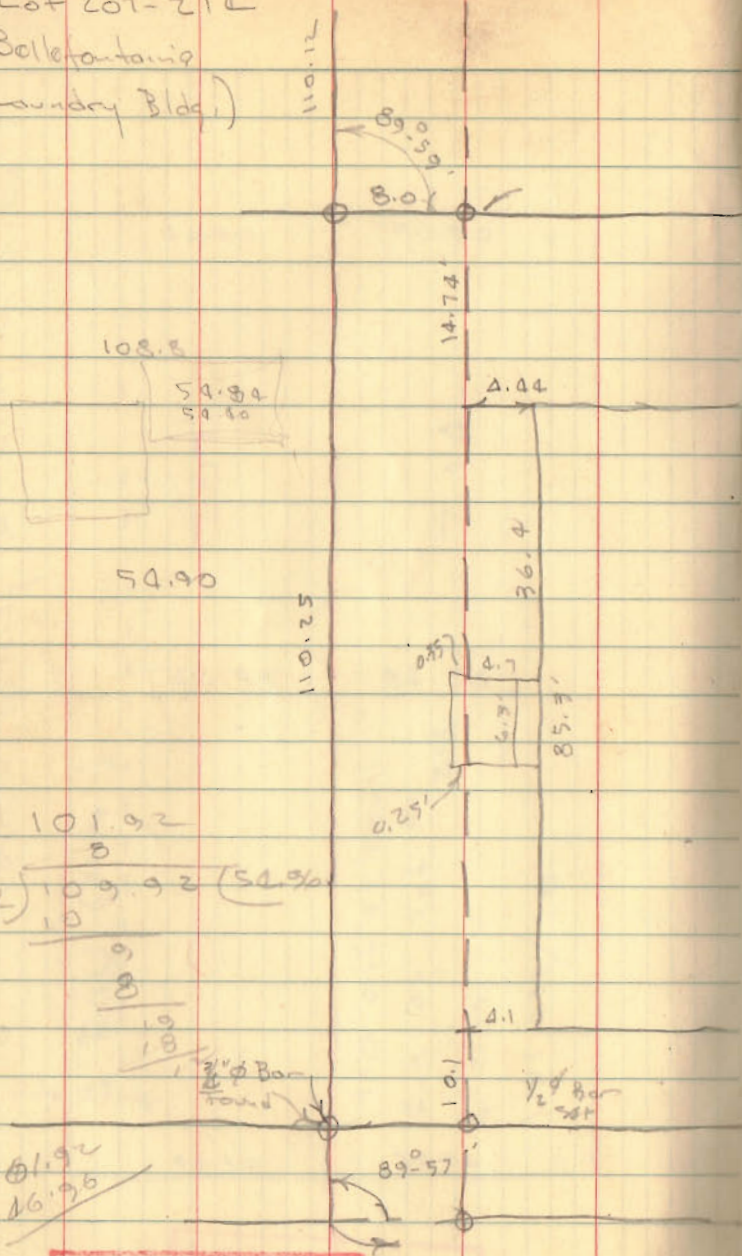 Lot 207-212
Bellefontaine
Laundry Bldg.)
110.12
89°-59'
8.0
14.74'
108.8
54.84
54.40
4.44
36.4
54.90
110.25
4.7
6.3'
85.3'
0.25'
101.92
8
109.92 (54.96
10
9
8
19
18
3/4" φ Bar
Found
4.1
10.1
1/2" φ Bar
Set
89°-57'
61.92
46.96